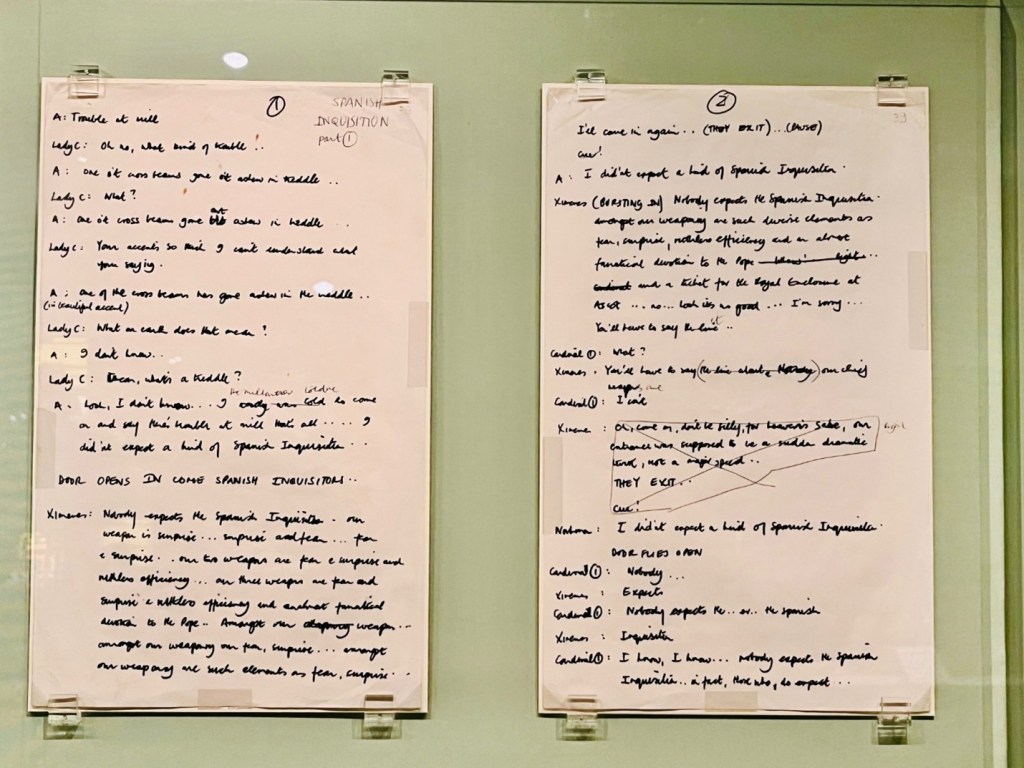 ①
SPANISH
INQUISITION
part ①
A: Trouble at mill
Lady C: Oh no, what kind of trouble ..
A: one o't cross beams gone o't askew in treddle ..
Lady C: What?
A: one o't cross beams gone out askew in treddle ...
Lady C: Your accents so thick I can't understand what
you saying.
A: one of the cross beams has gone askew in the treddle ..
(in beautiful accent)
Lady C: What on earth does that mean?
A: I don't know..
Lady C: what's a treddle?
the mill owner told me
A. Look, I don't know ... I only was told to come
on and say there's trouble at mill that's all .... I
did'nt expect a kind of Spanish Inquisition ..
DOOR OPENS IN COME SPANISH INQUISITORS..
Ximenes: Nobody expects the Spanish Inquisition. our
weapon is surprise... surprise and fear... fear
& surprise.. our two weapons are fear & surprise and
ruthless efficiency... our three weapons are fear and
surprise & ruthless efficiency and an almost fanatical
devotion to the Pope.. Amongst our weapons...
amongst our weaponry are fear, surprise... amongst
our weaponry are such elements as fear, surprise..
②
33
I'll come in again.. (THEY EXIT)...(PAUSE)
Cue!
A: I did'nt expect a kind of Spanish Inquisition.
Ximenes (BURSTING IN) Nobody expects the Spanish Inquisition.
amongst our weaponry are such diverse elements as
fear, surprise, ruthless efficiency and an almost
fanatical devotion to the Pope
and a ticket for the Royal Enclosure at
Ascot ... no... look it's no good ... I'm sorry ...
You'll have to say the line ..
Cardinal ①: What?
Ximenes. You'll have to say (the line about Nobody) our chief
weapons are
Cardinal ①: I can't
Ximenes: Oh, come on, don't be silly, for heaven's sake, our
entrance was supposed to be a sudden dramatic
THEY EXIT..
Cue!
I did'nt expect a kind of Spanish Inquisition.
DOOR FLIES OPEN
Cardinal ①: Nobody...
Ximenes: Expects
Cardinal ①: Nobody expects the.. er.. the Spanish
Ximenes: Inquisition
Cardinal ①: I know, I know... nobody expects the Spanish
Inquisition.. in fact, those who, do expect ..